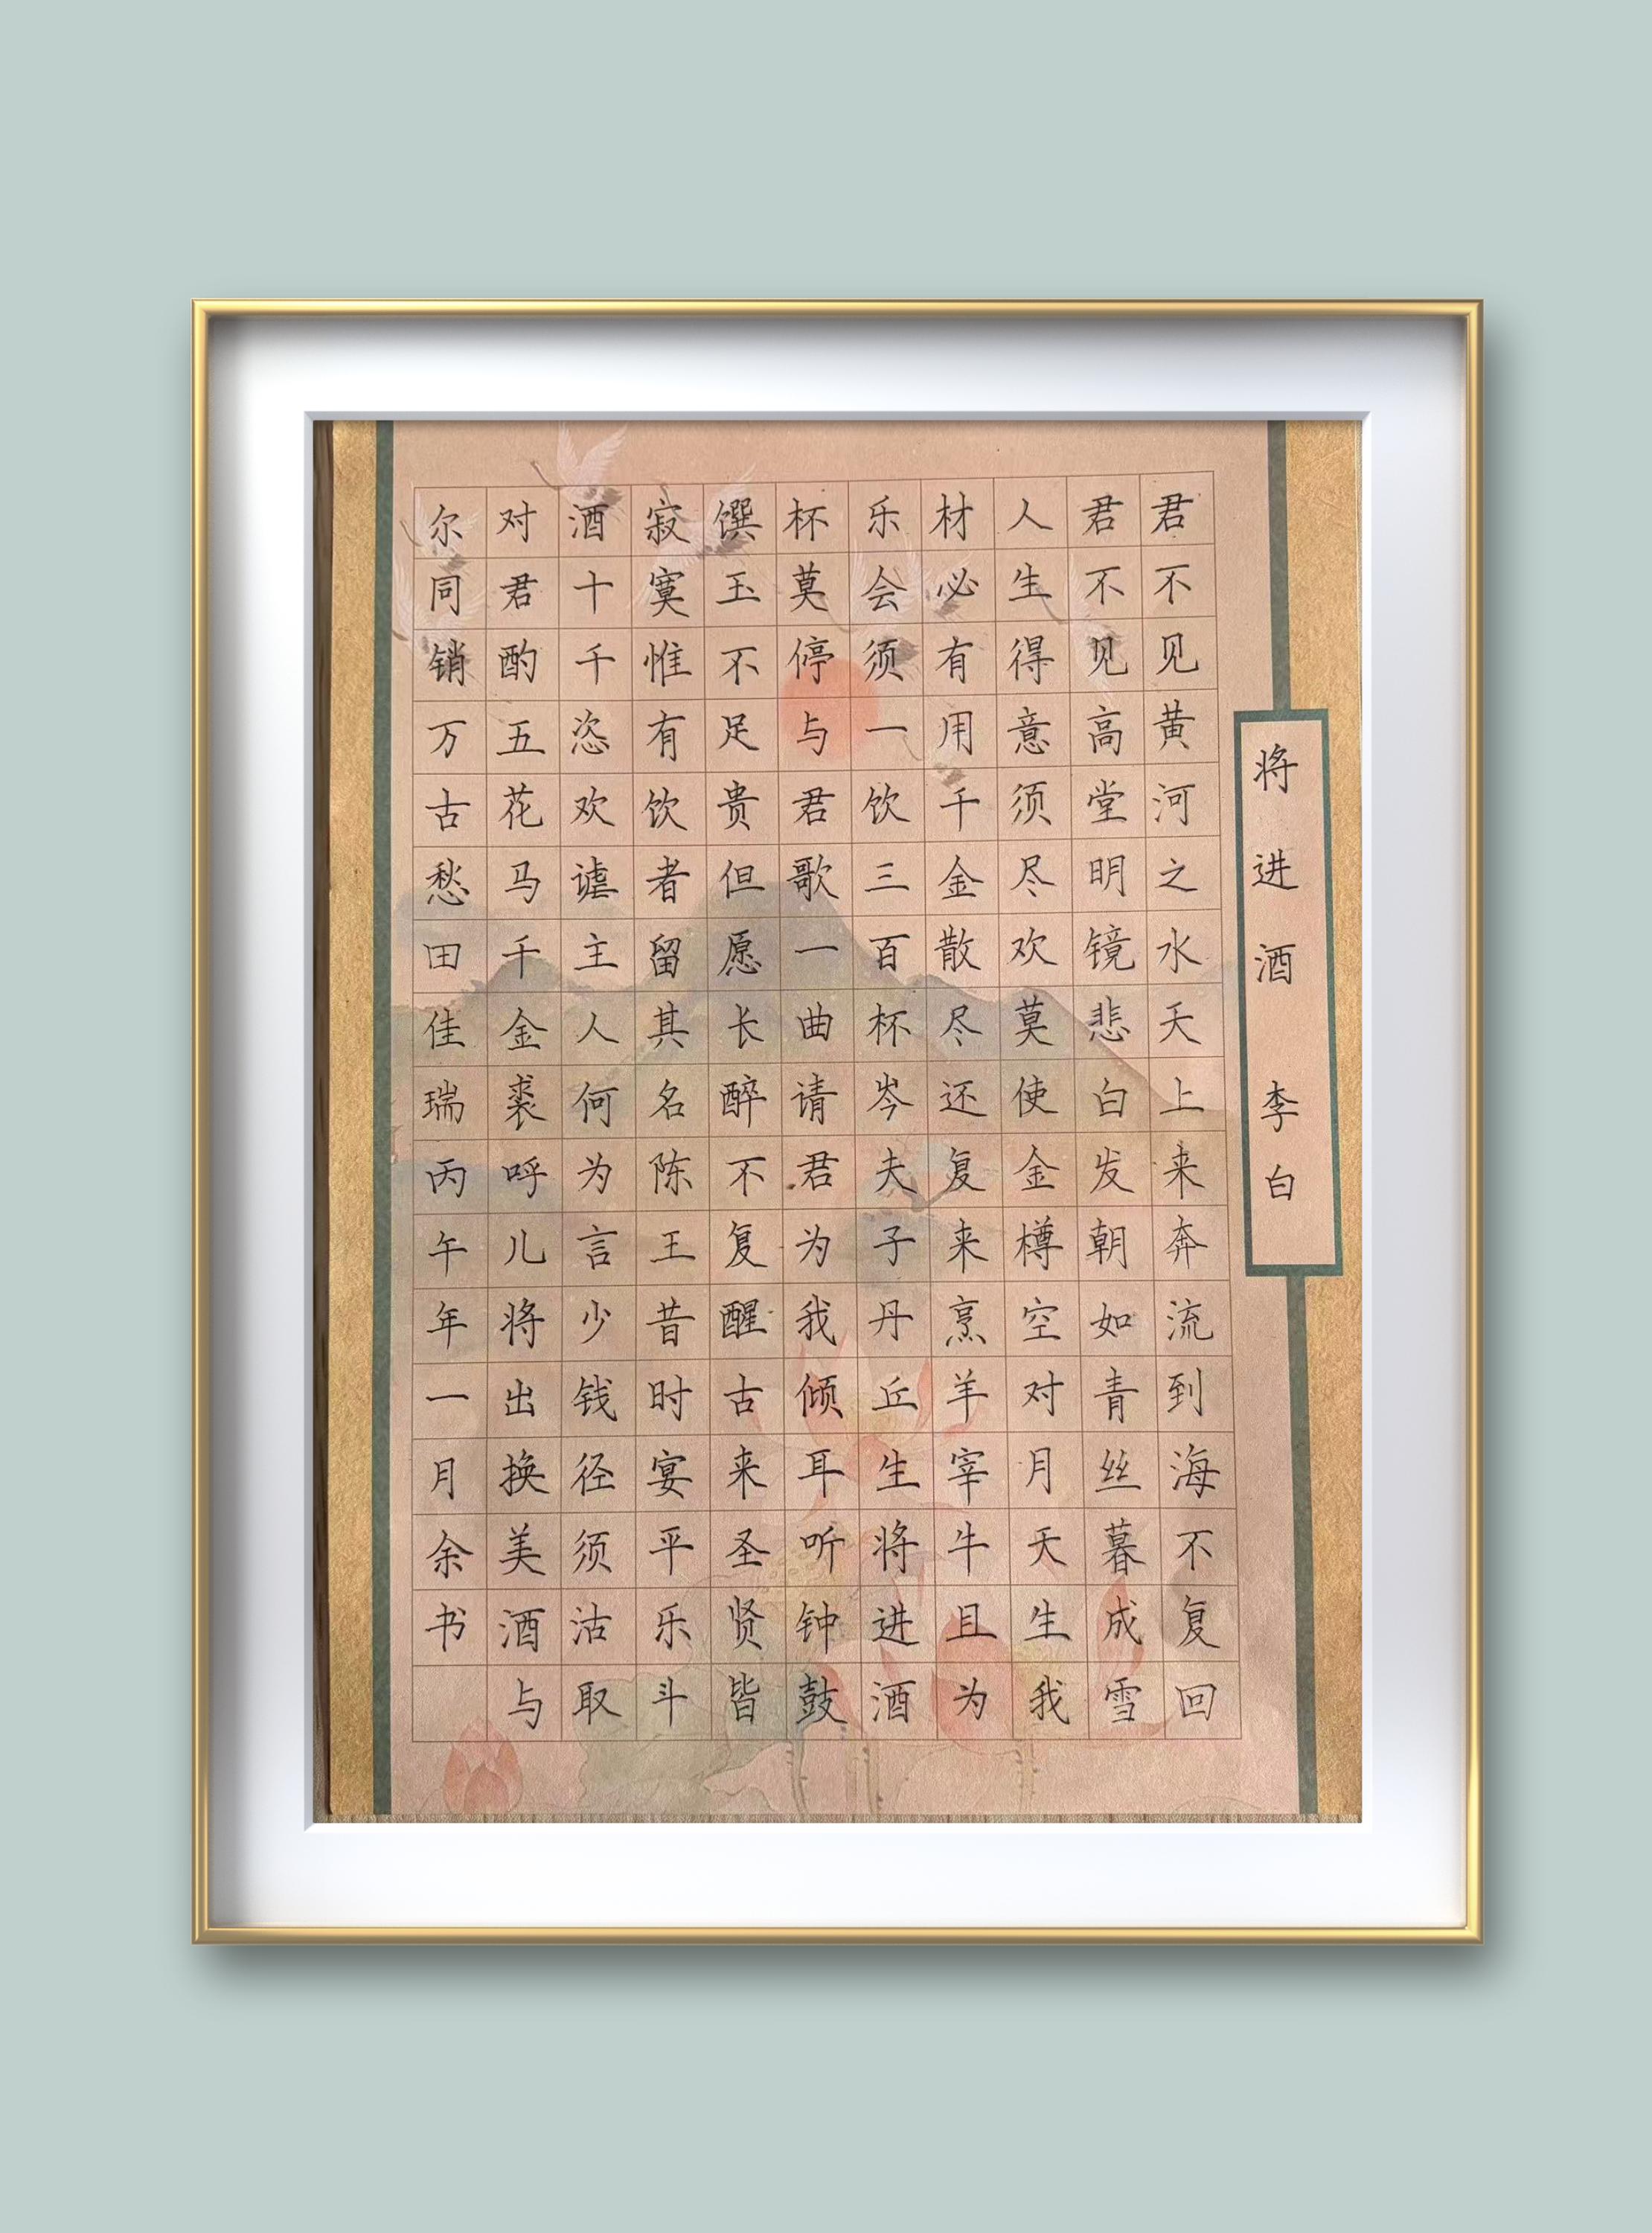 将进酒 李白
君不见黄河之水天上来奔流到海不复回
君不见高堂明镜悲白发朝如青丝暮成雪
人生得意须尽欢莫使金樽空对月天生我
材必有用千金散尽还复来烹羊宰牛且为
乐会须一饮三百杯岑夫子丹丘生将进酒
杯莫停与君歌一曲请君为我倾耳听钟鼓
馔玉不足贵但愿长醉不复醒古来圣贤皆
寂寞惟有饮者留其名陈王昔时宴平乐斗
酒十千恣欢谑主人何为言少钱径须沽取
对君酌五花马千金裘呼儿将出换美酒与
尔同销万古愁田佳瑞丙午年一月余书